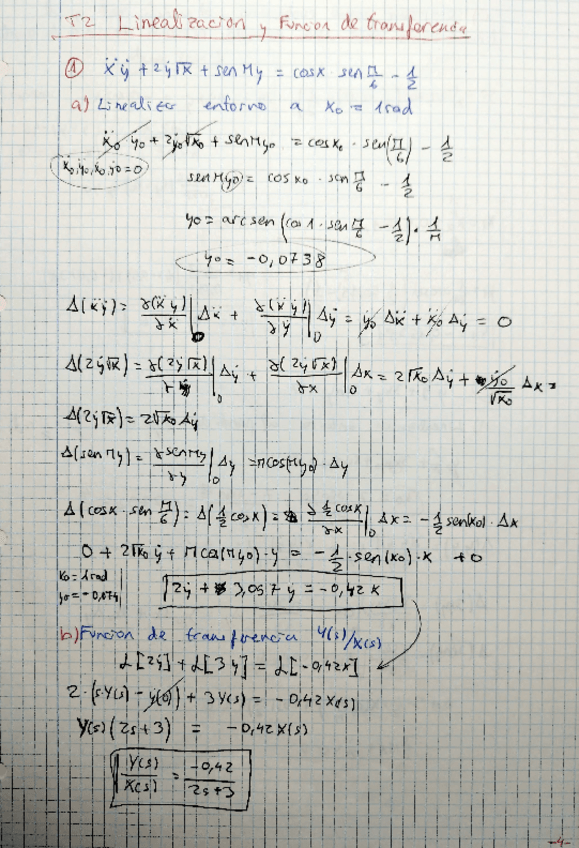 T2 Linealización y Función de transferencia
① ẍẏ + 2ẏ√x + senΠy = cosx · sen Π/6 - 1/2
a) Linealizar entorno a x₀ = 1rad
ẍ₀ ẏ₀ + 2ẏ₀√x₀ + senΠy₀ = cosx₀ · sen(Π/6) - 1/2
senΠy₀ = cos x₀ · sen Π/6 - 1/2
y₀ = arcsen (cos1 · sen Π/6 - 1/2) · 1/Π
y₀ = -0,0738
Δ(ẍẏ) = ∂(ẍẏ)/∂ẍ|₀ Δẍ + ∂(ẍẏ)/∂ẏ|₀ Δẏ = ẏ₀ Δẍ + ẍ₀ Δẏ = 0
Δ(2ẏ√x) = ∂(2ẏ√x)/∂ẏ|₀ Δẏ + ∂(2ẏ√x)/∂x|₀ Δx = 2√x₀ Δẏ + ẏ₀/√x₀ Δx =
Δ(2ẏ√x) = 2√x₀ Δẏ
Δ(senΠy) = ∂senΠy/∂y|₀ Δy = Πcos(Πy₀) · Δy
Δ(cosx · sen Π/6) = Δ(1/2 cosx) = ∂ 1/2 cosx/∂x|₀ Δx = -1/2 sen(x₀) · Δx
0 + 2√x₀ ẏ + Πcos(Πy₀) · y = -1/2 · sen(x₀) · x + 0
x₀ = 1rad
y₀ = -0,074
2ẏ + 3,057 y = -0,42 x
b) Función de transferencia Y(s)/X(s)
ℒ[2ẏ] + ℒ[3y] = ℒ[-0,42x]
2 · (s·Y(s) - y(0)) + 3Y(s) = -0,42X(s)
Y(s)(2s+3) = -0,42X(s)
Y(s)/X(s) = -0,42/2s+3
-4-